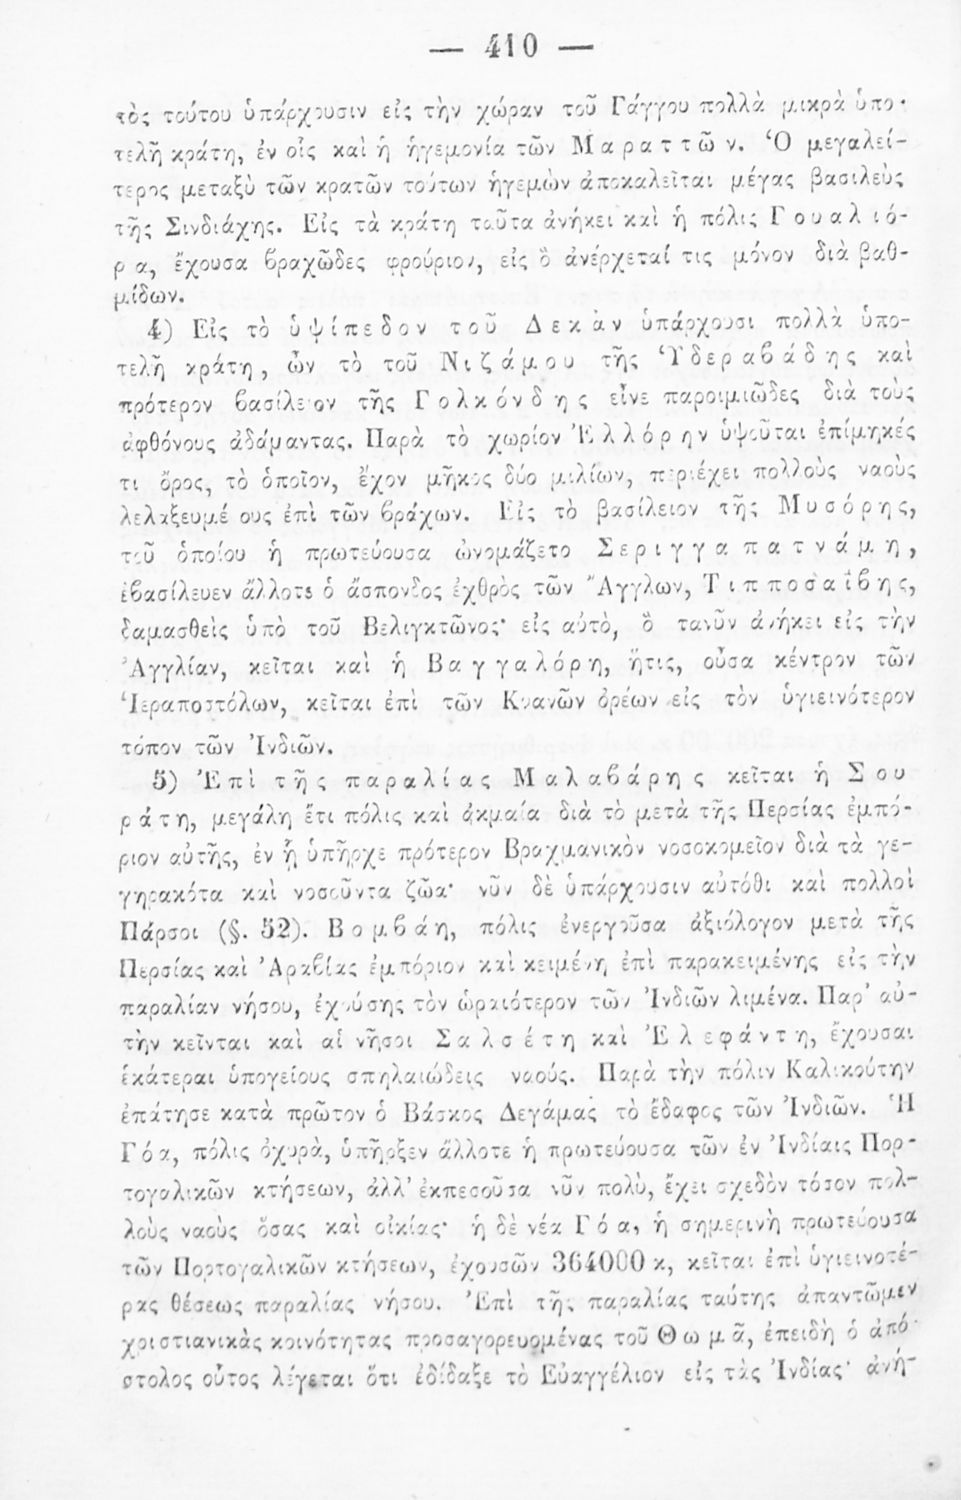 — 410 —
τὸς τούτου ὑπάρχουσιν εἰς τὴν χώραν τοῦ Γάγγου πολλὰ μικρὰ ὑπο-
τελῆ κράτη, ἐν οἷς καὶ ἡ ἡγεμονία τῶν Μαραττῶν. Ὁ μεγαλεί-
τερος μεταξὺ τῶν κρατῶν τούτων ἡγεμὼν ἀποκαλεῖται μέγας βασιλεὺς
τῆς Σινδιάχης. Εἰς τὰ κράτη ταῦτα ἀνήκει καὶ ἡ πόλις Γουαλιό-
ρα, ἔχουσα βραχῶδες φρούριον, εἰς ὃ ἀνέρχεταί τις μόνον διὰ βαθ-
μίδων.
4) Εἰς τὸ ὑψίπεδον τοῦ Δεκὰν ὑπάρχουσι πολλὰ ὑπο-
τελῆ κράτη, ὧν τὸ τοῦ Νιζάμου τῆς Ὑδεραβάδης καὶ
πρότερον βασίλειον τῆς Γολκόνδης εἶνε παροιμιῶδες διὰ τοὺς
ἀφθόνους ἀδάμαντας. Παρὰ τὸ χωρίον Ἐλλόρην ὑψοῦται ἐπίμηκές
τι ὄρος, τὸ ὁποῖον, ἔχον μῆκος δύο μιλίων, περιέχει πολλοὺς ναοὺς
λελαξευμέ ους ἐπὶ τῶν βράχων. Εἰς τὸ βασίλειον τῆς Μυσόρης,
τοῦ ὁποίου ἡ πρωτεύουσα ὠνομάζετο Σεριγγαπατνάμη,
ἐβασίλευεν ἄλλοτε ὁ ἄσπονδος ἐχθρὸς τῶν Ἄγγλων, Τιπποσαΐβης,
δαμασθεὶς ὑπὸ τοῦ Βελιγκτῶνος· εἰς αὐτὸ, ὃ τανῦν ἀνήκει εἰς τὴν
Ἀγγλίαν, κεῖται καὶ ἡ Βαγγαλόρη, ἥτις, οὖσα κέντρον τῶν
Ἱεραποστόλων, κεῖται ἐπὶ τῶν Κυανῶν ὀρέων εἰς τὸν ὑγιεινότερον
τόπον τῶν Ἰνδιῶν.
5) Ἐπὶ τῆς παραλίας Μαλαβάρης κεῖται ἡ Σου
ράτη, μεγάλη ἔτι πόλις καὶ ἀκμαία διὰ τὸ μετὰ τῆς Περσίας ἐμπό-
ριον αὐτῆς, ἐν ᾗ ὑπῆρχε πρότερον Βραχμανικὸν νοσοκομεῖον διὰ τὰ γε-
γηρακότα καὶ νοσοῦντα ζῶα· νῦν δὲ ὑπάρχουσιν αὐτόθι καὶ πολλοὶ
Πάρσοι (§. 52). Βομβάη, πόλις ἐνεργοῦσα ἀξιόλογον μετὰ τῆς
Περσίας καὶ Ἀραβίας ἐμπόριον καὶ κειμένη ἐπὶ παρακειμένης εἰς τὴν
παραλίαν νήσου, ἐχούσης τὸν ὡραιότερον τῶν Ἰνδιῶν λιμένα. Παρ' αὐ-
τὴν κεῖνται καὶ αἱ νῆσοι Σαλσέτη καὶ Ἐλεφάντη, ἔχουσαι
ἑκάτεραι ὑπογείους σπηλαιώδεις ναούς. Παρὰ τὴν πόλιν Καλικούτην
ἐπάτησε κατὰ πρῶτον ὁ Βάσκος Δεγάμας τὸ ἔδαφος τῶν Ἰνδιῶν. Ἡ
Γόα, πόλις ὀχυρὰ, ὑπῆρξεν ἄλλοτε ἡ πρωτεύουσα τῶν ἐν Ἰνδίαις Πορ-
τογαλικῶν κτήσεων, ἀλλ' ἐκπεσοῦσα νῦν πολὺ, ἔχει σχεδὸν τόσον πολ-
λοὺς ναοὺς ὅσας καὶ οἰκίας· ἡ δὲ νέα Γόα, ἡ σημερινὴ πρωτεύουσα
τῶν Πορτογαλικῶν κτήσεων, ἐχουσῶν 364000 κ, κεῖται ἐπὶ ὑγιεινοτέ-
ρας θέσεως παραλίας νήσου. Ἐπὶ τῆς παραλίας ταύτης ἀπαντῶμεν
χριστιανικὰς κοινότητας προσαγορευομένας τοῦ Θωμᾶ, ἐπειδὴ ὁ ἀπό-
στολος οὗτος λέγεται ὅτι ἐδίδαξε τὸ Εὐαγγέλιον εἰς τὰς Ἰνδίας· ἀνή-